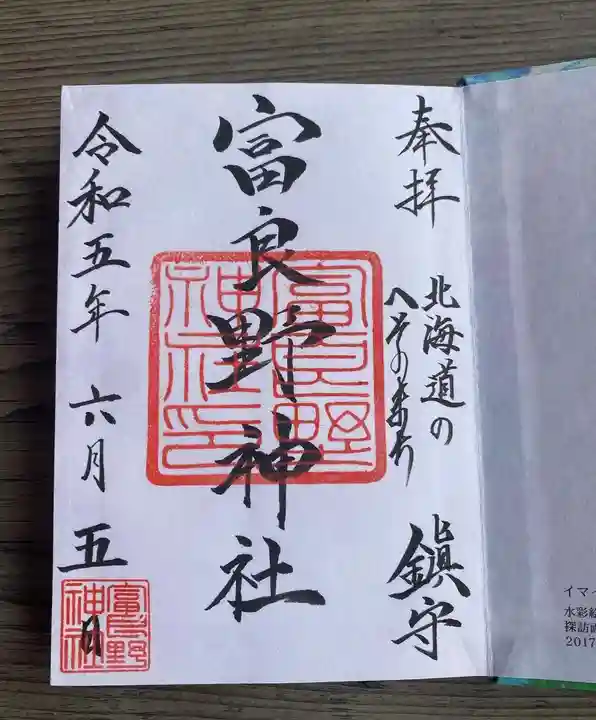 奉拝
北海道の
へその真ん中
鎮守
富良野神社
富良野神社印
令和五年 六月 五日
富良野神社
イマ
水彩絵
探訪
2017